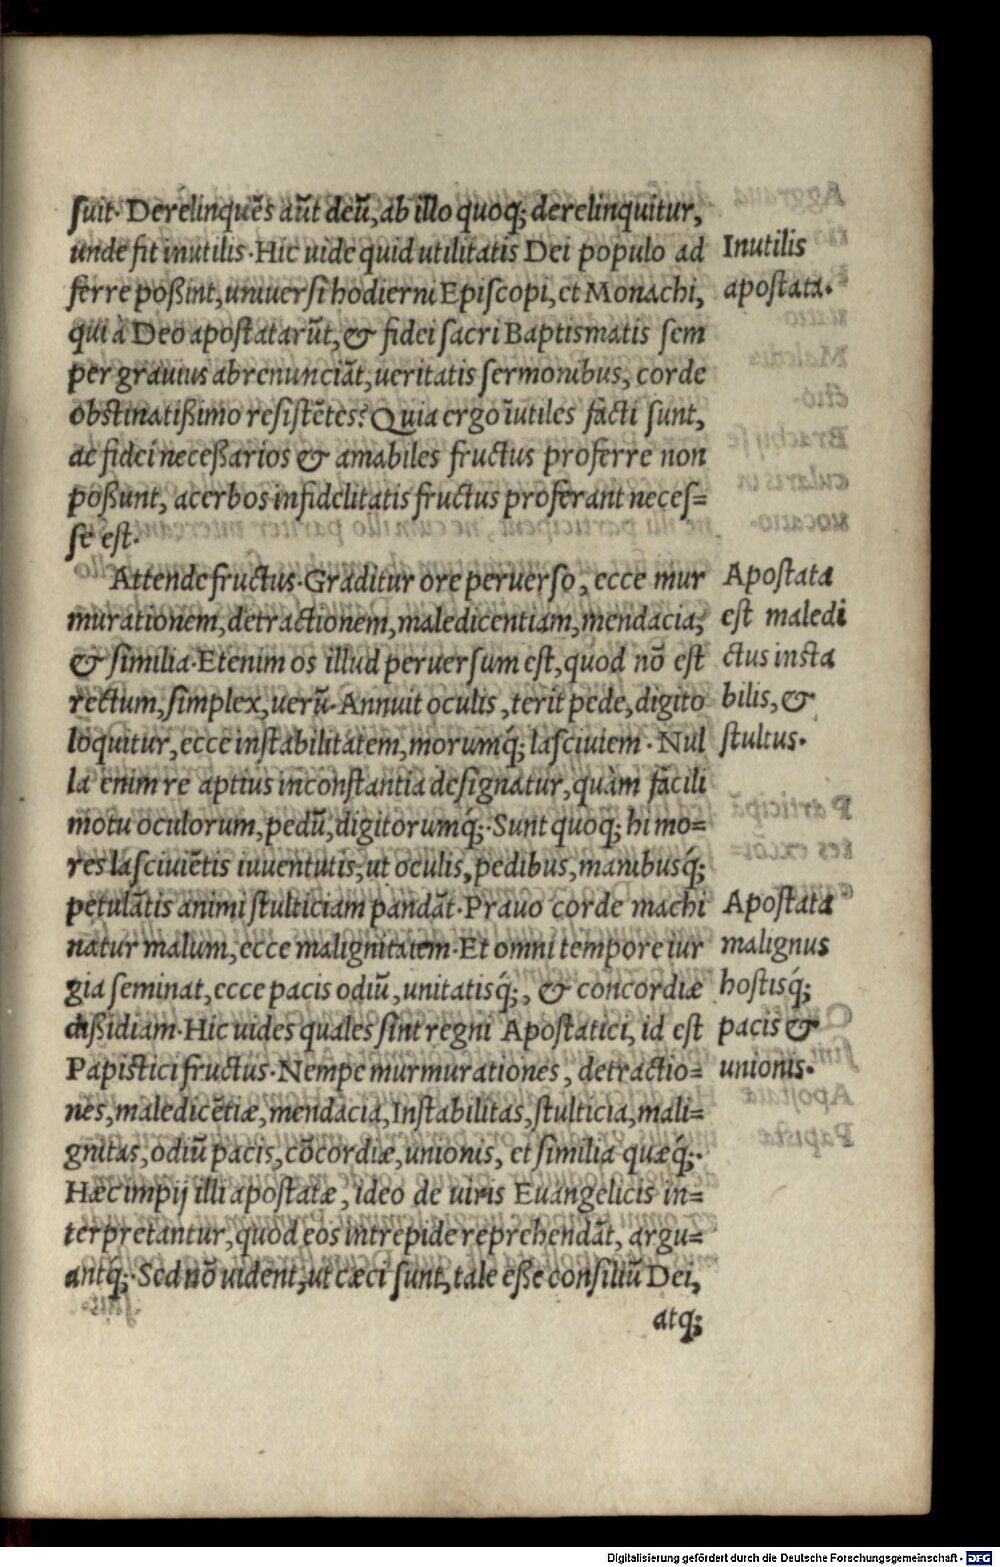 ſuit. Derelinquẽs aũt deũ, ab illo quoq; derelinquitur,
unde fit inutilis. Hic uide quid utilitatis Dei populo ad
ferre poßint, uniuerſi hodierni Epiſcopi, et Monachi,
qui à Deo apoſtatarũt, & fidei ſacri Baptismatis ſem
per grauius abrenunciãt, ueritatis ſermonibus, corde
obſtinatißimo reſiſtẽtes? Quia ergo ĩutiles facti ſunt,
ac fidei neceßarios & amabiles fructus proferre non
poßunt, acerbos infidelitatis fructus proferant neceſ=
ſe eſt.
Inutilis
apoſtata.
Attende fructus. Graditur ore peruerſo, ecce mur
murationem, detractionem, maledicentiam, mendacia,
& ſimilia. Etenim os illud peruerſum eſt, quod nõ eſt
rectum, ſimplex, uerũ. Annuit oculis, terit pede, digito
loquitur, ecce inſtabilitatem, morumq́; laſciuiem. Nul
la enim re aptius inconſtantia deſignatur, quàm facili
motu oculorum, pedũ, digitorumq́;. Sunt quoq; hi mo=
res laſciuiẽtis iuuentutis, ut oculis, pedibus, manibusq́;
petulãtis animi ſtulticiam pandãt. Prauo corde machi
natur malum, ecce malignitatem. Et omni tempore iur
gia ſeminat, ecce pacis odiũ, unitatisq́;, & concordiæ
dißidiam. Hic uides quales ſint regni Apoſtatici, id eſt
Papiſtici fructus. Nempe murmurationes, detractio=
nes, maledicẽtiæ, mendacia, Inſtabilitas, ſtulticia, mali=
gnitas, odiũ pacis, cõcordiæ, unionis, et ſimilia quæq́;.
Hæc impij illi apoſtatæ, ideo de uiris Euangelicis in=
terpretantur, quod eos intrepide reprehendãt, argu=
antq́;. Sed nõ uident, ut cæci ſunt, tale eße conſiliũ Dei,
atq;
Apoſtata
eſt maledi
ctus inſta
bilis, &
ſtultus.
Apoſtata
malignus
hoſtisq́;
pacis &
unionis.
Digitalisierung gefördert durch die Deutsche Forschungsgemeinschaft - DFG